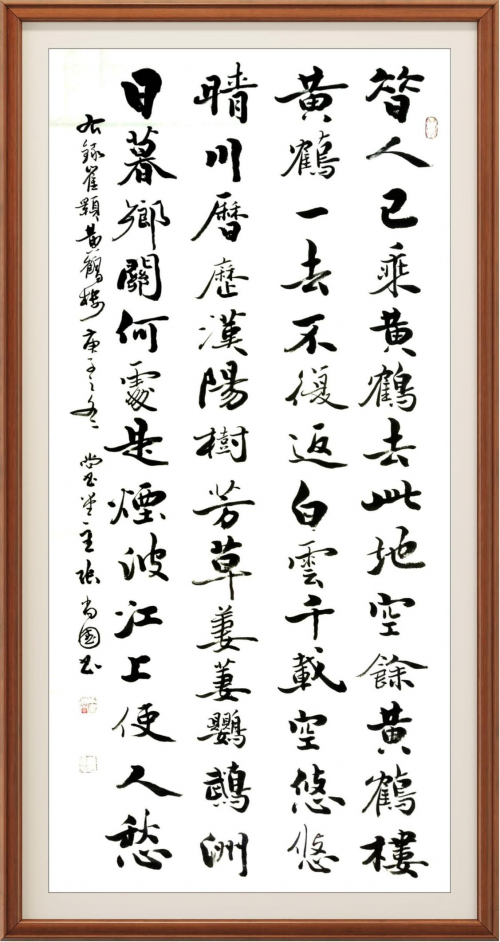 昔人已乘黄鶴去此地空餘黄鶴樓
黄鶴一去不復返白雲千載空悠悠
晴川曆歷漢陽樹芳草萋萋鸚鵡洲
日暮鄉關何處是煙波江上使人愁
右録崔顥黄鶴樓 庚子之冬 堂主張尚國書